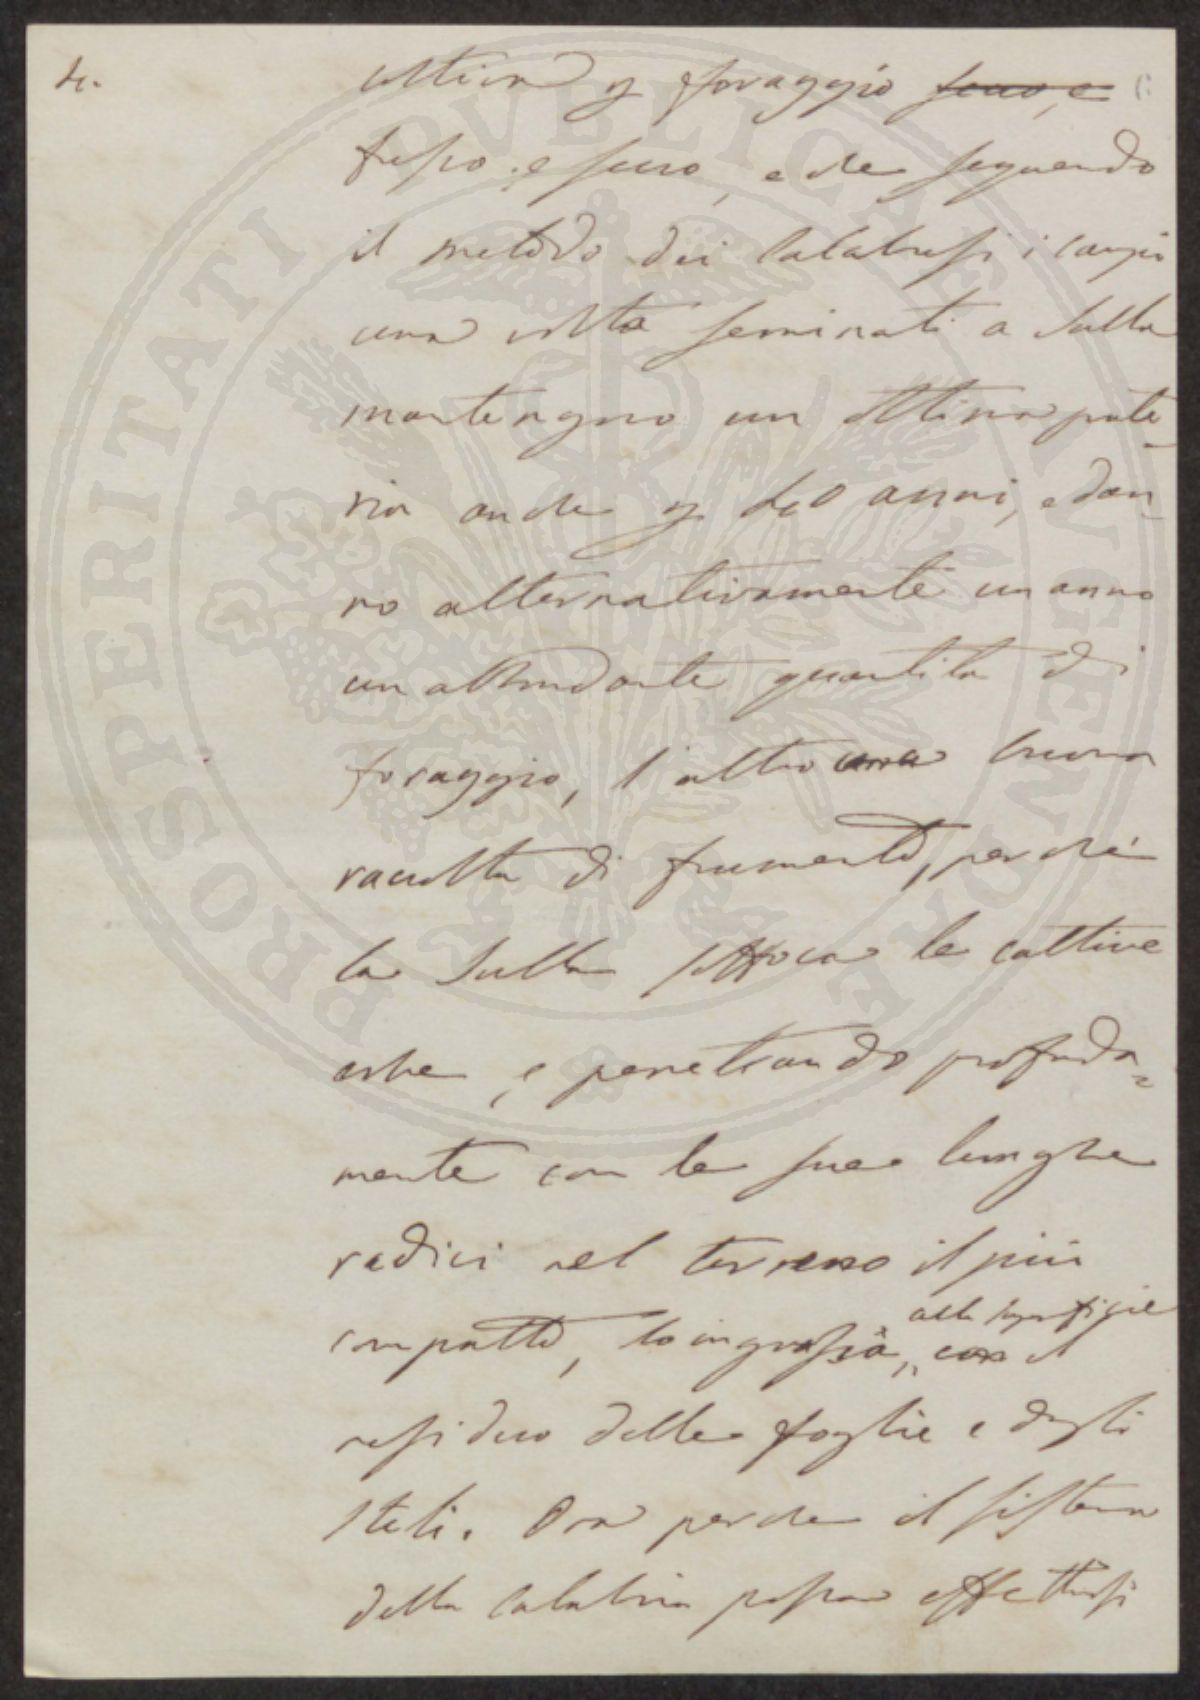 4.
ottima p foraggio ~~secco, e~~
fresco, e secco, e che seguendo
il metodo dei Calabresi i campi
una volta seminati a Sulla
mantengno un ottima prate-
ria anche p 40 anni, e dan-
no alternativamente un anno
un abbondante quantita di
foraggio, l'altro una buona
raccolta di frumento, perché
la Sulla soffoca le cattive
erbe, e penetrando profonda=
mente con le sue lunghe
radici nel terreno il più
compatto, lo ingrassa alla superficie, con il
residuo delle foglie e degli
Steli. Ora perche il sistema
della Calabria possa effettuarsi
PROSPERITATI PVBLICAE AVGENDAE